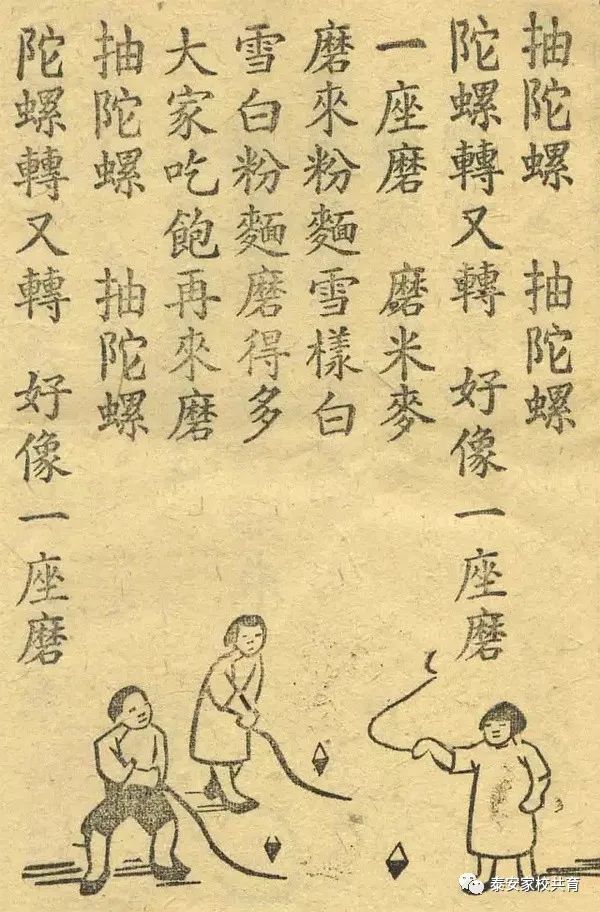 抽陀螺 抽陀螺
陀螺轉又轉 好像一座磨
一座磨 磨米麥
磨來粉麵雪樣白
雪白粉麵磨得多
大家吃飽再來磨
抽陀螺 抽陀螺
陀螺轉又轉 好像一座磨
泰安家校共育